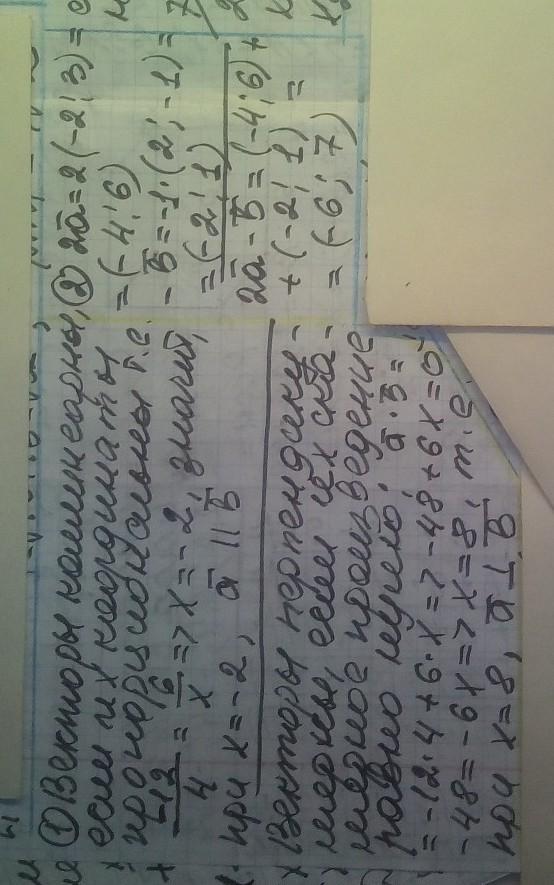 ① Векторы коллинеарны,
если их координаты
пропорциональны т.е.
-12/4 = 6/x => x = -2, значит,
при x = -2, a̅ || b̅
Векторы перпендику-
лярны, если их ска-
лярное произведение
равно нулю, a̅ · b̅ =
= -12·4 + 6·x => -48 + 6x = 0
-48 = -6x => x = 8, т.е.
при x = 8, a̅ ⊥ b̅
② 2a̅ = 2(-2; 3) =
= (-4; 6)
- b̅ = -1·(2; -1) =
= (-2; 1)
2a̅ - b̅ = (-4; 6) +
+ (-2; 1) =
= (-6; 7)